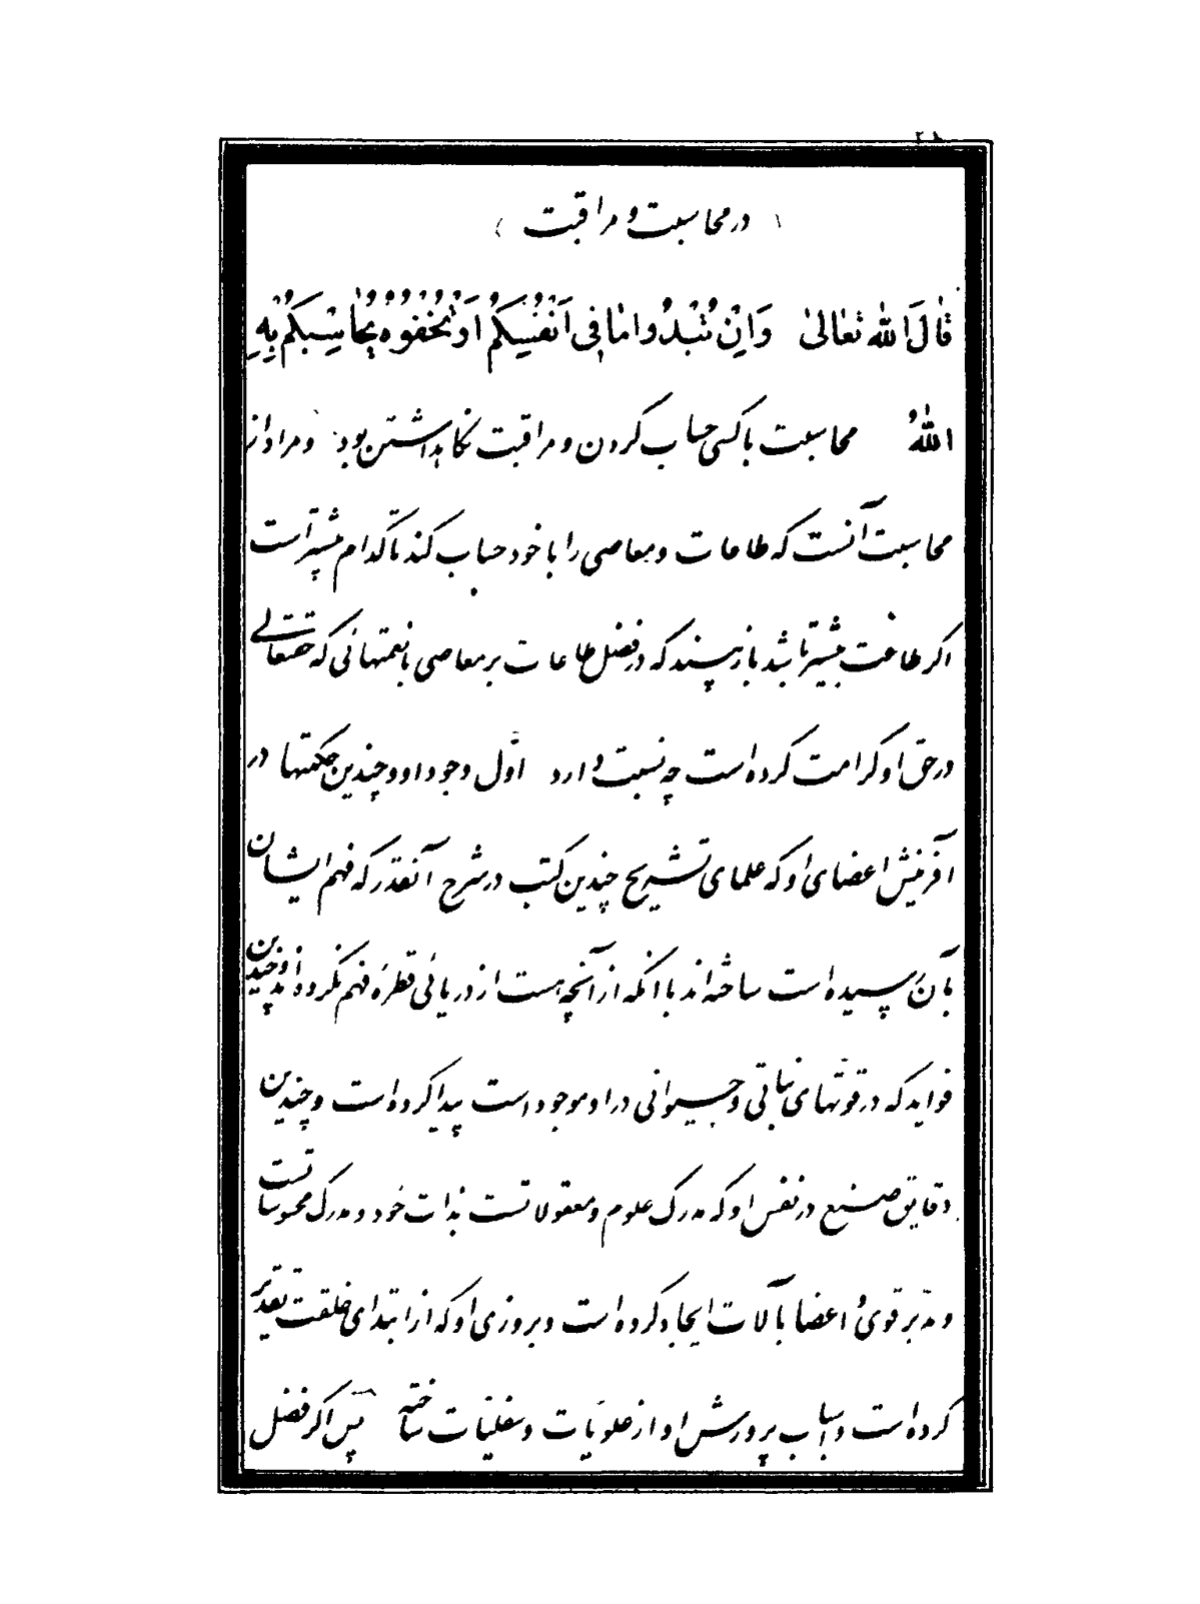 ۲۸
( در محاسبت و مراقبت )
قالَ اللّه تعالىٰ وَاِنْ تُبْدُوا مٰا فِى اَنْفُسِكُمْ اَوْ تُخْفُوهُ يُحٰاسِبْكُمْ بِهِ
اللّٰهُ محاسبت با کسی حساب کردن و مراقبت نکاهداشتن بود و مراد از
محاسبت آنست که طاعات و معاصی را با خود حساب کند تا کدام بیشتر است
اکر طاعت بیشتر باشد باز بیند که در فضل طاعات بر معاصی با نعمتهائی که حقتعالی
در حق او کرامت کرده است چه نسبت دارد اوّل وجود او و چندین حکمتها در
آفرینش اعضای او که علمای تشریح چندین کتب در شرح آنقدر که فهم ایشان
بآن رسیده است ساخته‌اند با آنکه از آنچه هست از دریائی قطرهٔ فهم نکرده‌اند و چندین
فواید که در قوّتهای نباتی و حیوانی در او موجود است پیدا کرده است و چندین
دقایق صنع در نفس او که مدرک علوم و معقولاتست بذات خود و مدرک محسوساتست
و مدبّر قوی و اعضا بآلات ایجاد کرده است و بروزی او که از ابتدای خلقت تقدیر
کرده است و اسباب پرورش او از علویّات و سفلیّات ساخته پس اکر فضل